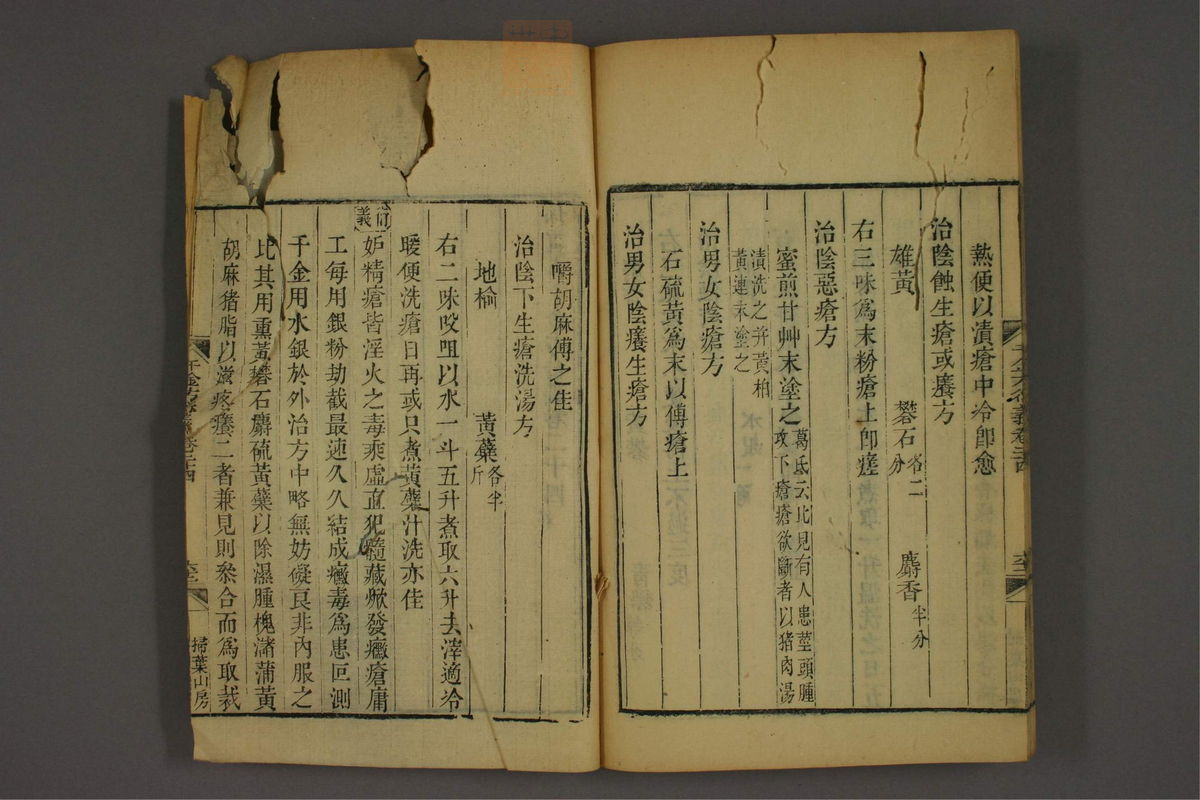 熱便以漬瘡中冷卽愈
治陰蝕生瘡或癢方
雄黃　礬石各二分　麝香半分
右三味爲末粉瘡上卽瘥
治陰惡瘡方
蜜煎甘艸末塗之葛氏云比見有人患莖頭腫攻下瘡瘡欲斷者以猪肉湯
漬洗之幷黃柏黃連末塗之
治男女陰瘡方
石硫黃爲末以傅瘡上
治男女陰癢生瘡方
嚼胡麻傅之佳
治陰下生瘡洗湯方
地榆　黃蘗各半斤
右二味㕮咀以水一斗五升煮取六升去滓適冷
暖便洗瘡日再或只煮黃蘗汁洗亦佳
義
妒精瘡皆淫火之毒乘虛直犯髓藏焮發癥瘡庸
工每用銀粉劫截最速久久結成癥毒爲患叵測
千金用水銀於外治方中略無妨礙良非內服之
比其用熏黃礬石麝硫黃蘗以除濕腫槐瀦蒲黃
胡麻猪脂以滋疼癢二者兼見則叅合而爲取裁
掃葉山房